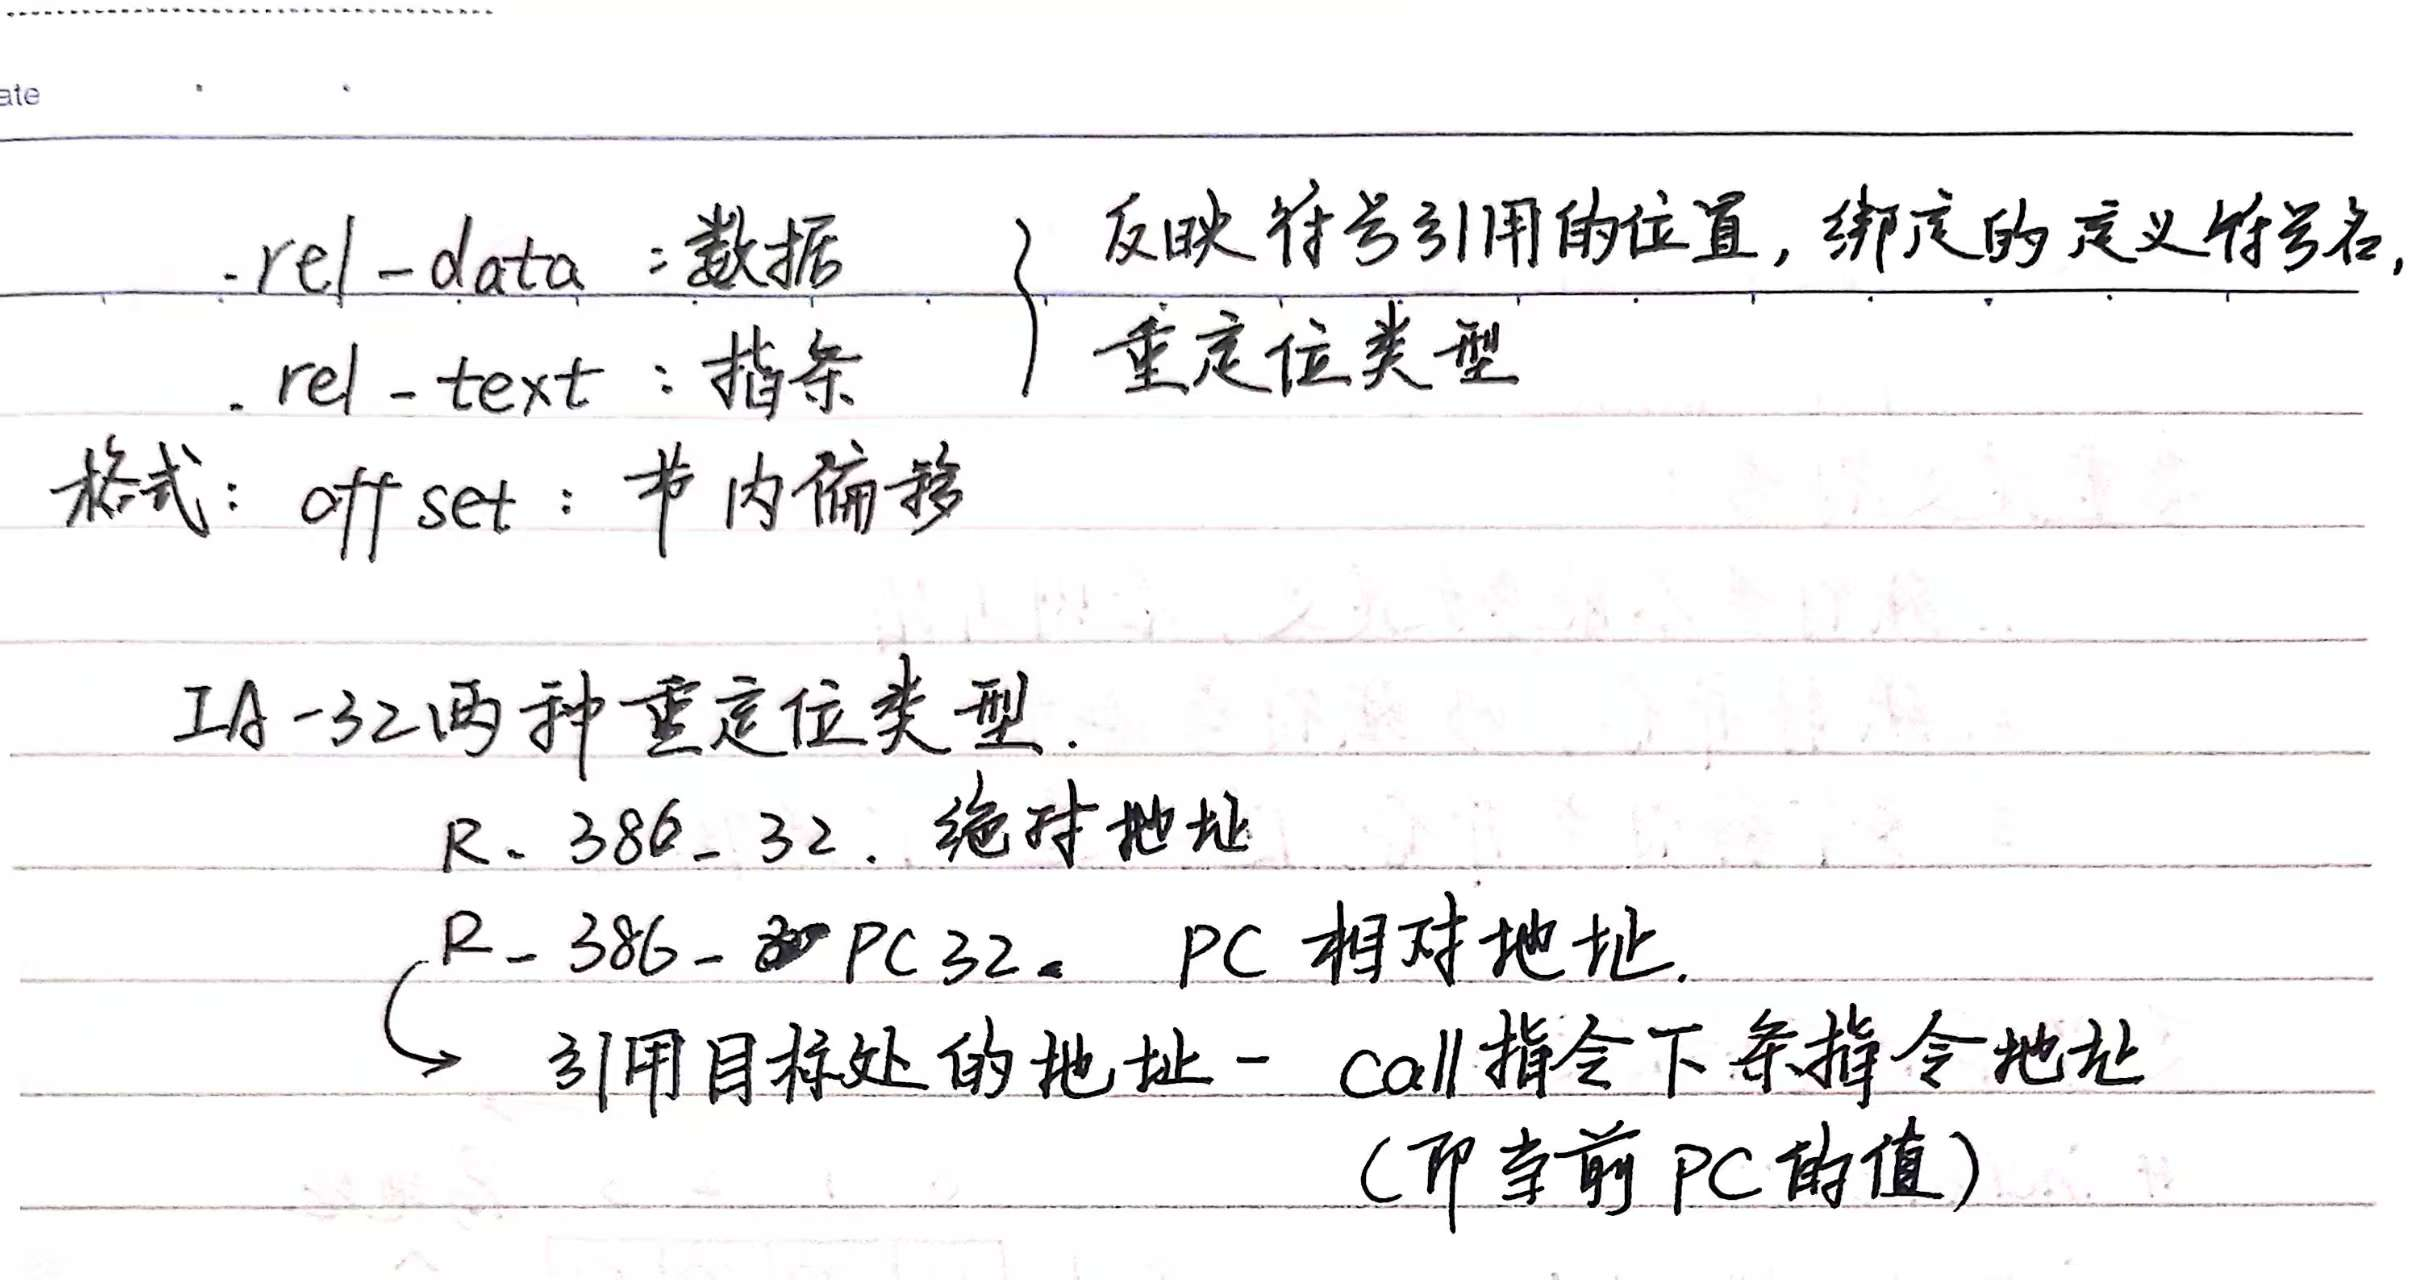 ate
.rel_data：数据
反映符号引用的位置，绑定的定义符号名，
.rel_text：指条
重定位类型
格式：offset：节内偏移
IA-32两种重定位类型.
R_386_32. 绝对地址
R_386_PC32. PC相对地址.
引用目标处的地址- call指令下条指令地址
(即当前PC的值)